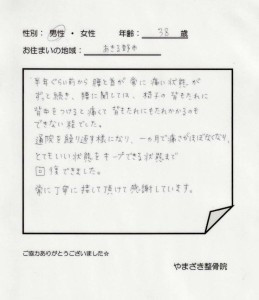 性別： 男性 ・ 女性　年齢： 38 歳
お住まいの地域： あきる野市
半年ぐらい前から腰と首が常に痛い状態が
ずっと続き、腰に関しては、椅子の背もたれに
背中をつけると痛くて背もたれにもたれかかるのも
できない程でした。
通院を繰り返す様になり、一ヶ月で痛さがほぼなくなり、
とてもいい状態をキープできる状態まで
回復できました。
常に丁寧に接して頂けて感謝しています。
ご協力ありがとうございました☆
やまざき整骨院